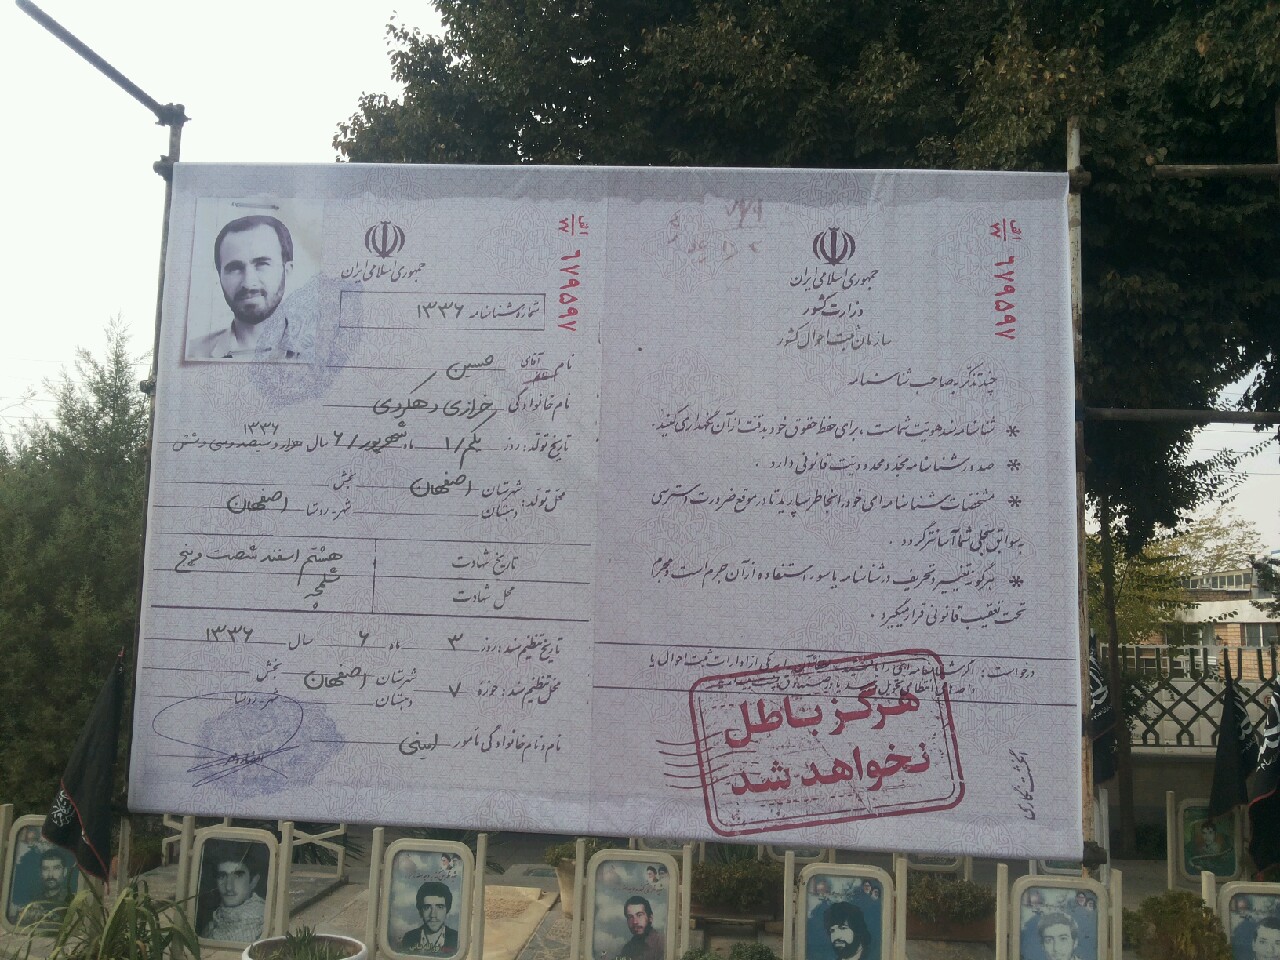 الف
۷۷
۶۷۹۵۹۷
جمهوری اسلامی ایران
وزارت کشور
سازمان ثبت احوال کشور
چند تذکر به صاحب شناسنامه
* شناسنامه سند هویت شماست، برای حفظ حقوق خود بدقت از آن نگهداری کنید.
* صدور شناسنامه مجدد محدودیت قانونی دارد.
* مشخصات شناسنامه ای خود را بخاطر بسپارید تا در موقع ضرورت دسترسی
به سوابق سجلی شما آسانتر گردد.
* هرگونه تغییر و تحریف در شناسنامه یا سوء استفاده از آن جرم است و مجرم
تحت تعقیب قانونی قرار میگیرد.
درخواست: از ادارات ثبت احوال یا
هرگز باطل
نخواهد شد
انگشت نگاری
الف
۷۷
۶۷۹۵۹۷
جمهوری اسلامی ایران
شماره شناسنامه ۱۳۳۶
نام آقای حسین
نام خانوادگی خرازی دهکردی
۱۳۳۶
تاریخ تولد: روز یکم/۱ ماه شهریور/۶ سال هزار و سیصد و سی و شش
محل تولد: شهرستان اصفهان بخش
دهستان شهر - روستا اصفهان
تاریخ شهادت هشتم اسفند شصت و پنج
محل شهادت شلمچه
تاریخ تنظیم سند: روز ۳ ماه ۶ سال ۱۳۳۶
محل تنظیم سند: حوزه ۷ شهرستان اصفهان بخش
دهستان شهر - روستا
نام و نام خانوادگی مأمور امینی